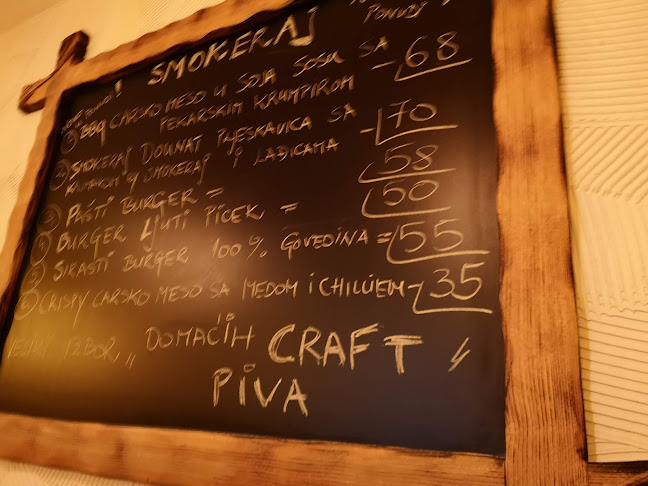 PONUDI !
SMOKERAJ
! 
① BBQ CARSKO MESO U SOJA SOSU SA
PEKARSKIM KRUMPIROM - 68
② SMOKERAJ DOUNAT PLJESKAVICA SA
KUPUSOM I LADICAMA - 70
③ PAŠTI BURGER = 58
④ BURGER LJUTI PICEK = 50
⑤ SIRASTI BURGER 100% GOVEDINA = 55
⑥ CRISPY CARSKO MESO SA MEDOM I CHILLIEM - 35
VELIKI IZBOR „ DOMAĆIH CRAFT "
PIVA